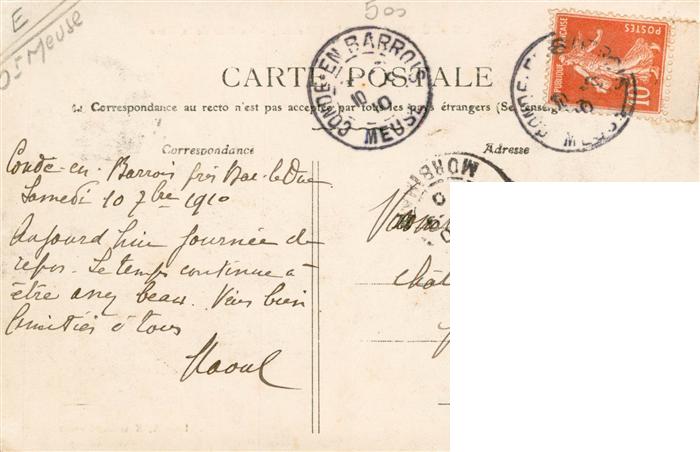 E
Dt Meuse
500
CARTE POSTALE
La Correspondance au recto n'est pas acceptée par tous les pays étrangers (Se renseign
CONDÉ-EN-BARROIS
MEUSE
10
10
MORB
Correspondance
Adresse
Condé-en-Barrois près Bar-le-Duc
Samedi 10 7bre 1910
Aujourd'hui journée de
repos. Le temps continue à
être assez beau. Viens bien
amitiés à tous
Raoul
chât